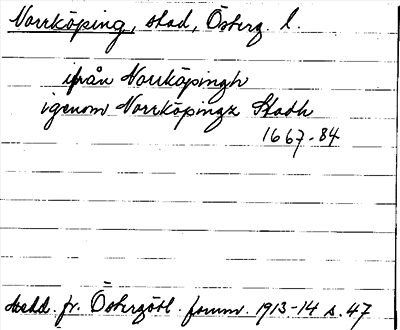 Norrköping, stad, Österg. l.
ifrån Norrköpingh
igenom Norrköpingz Stadh
1667-84
Medd. fr. Östergötl. fornm. 1913-14 s. 47